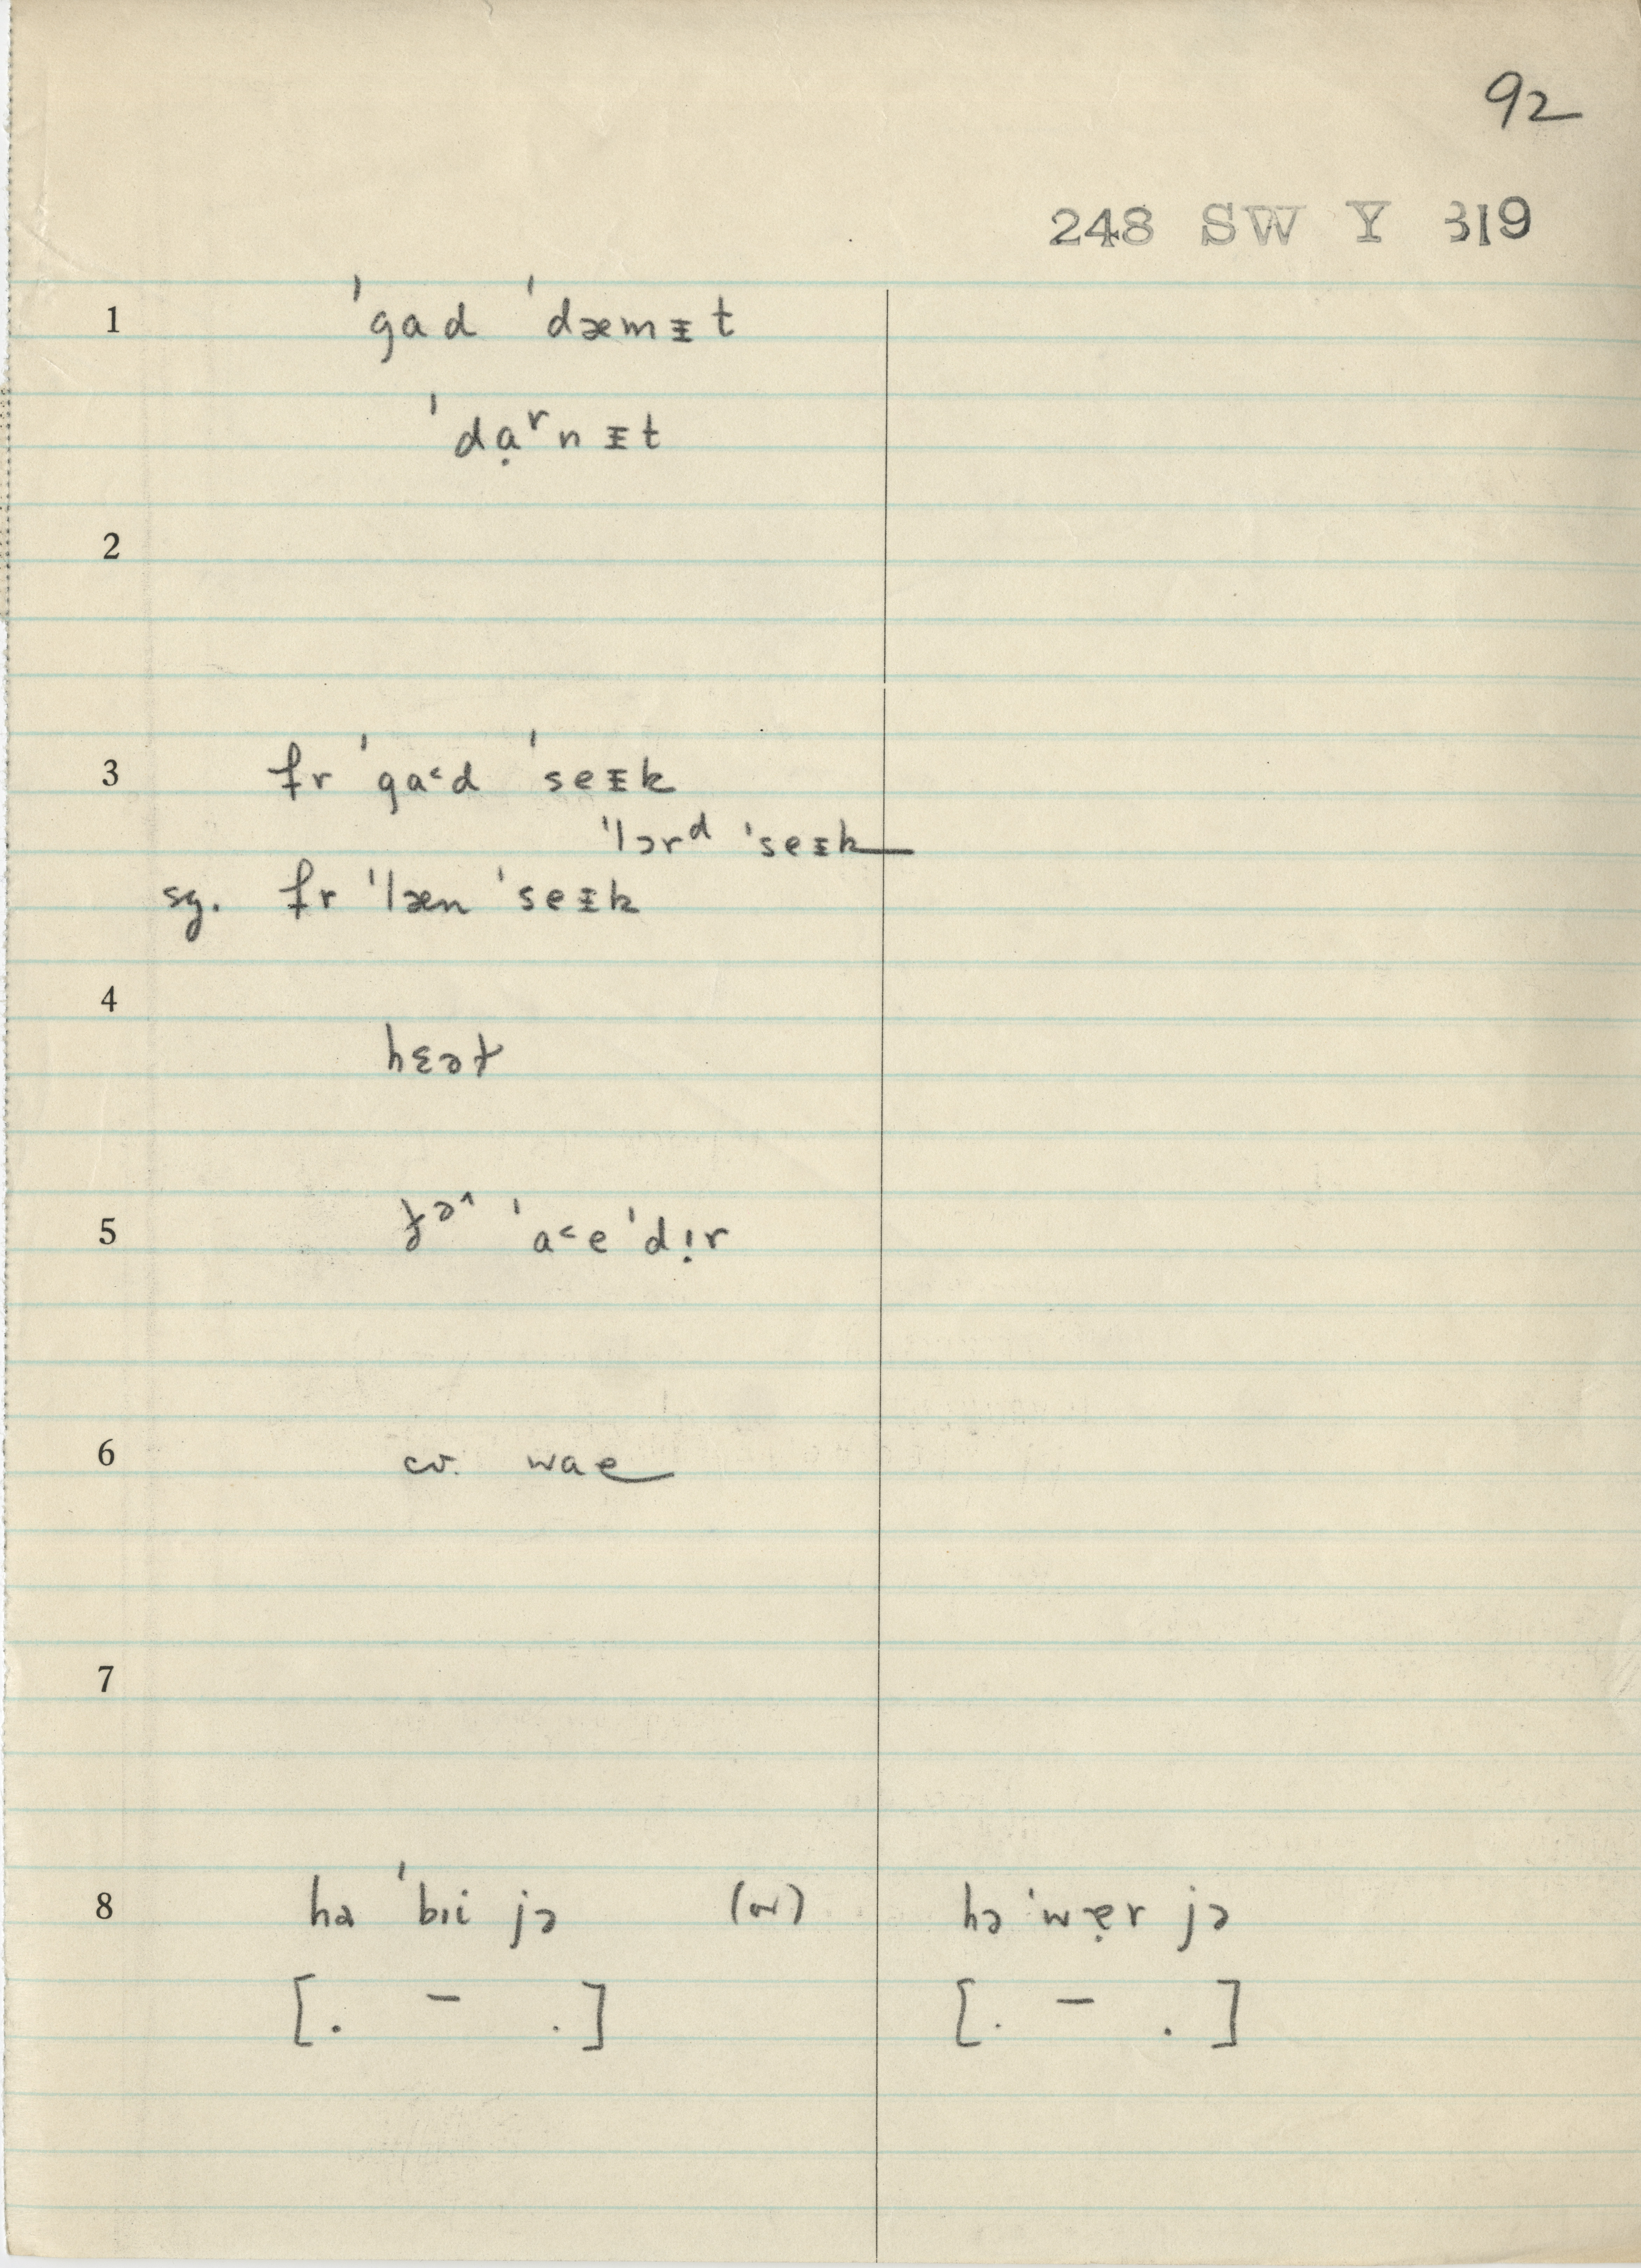 92
248 SW Y 319
1 ˈgad ˈdæmᵻt
ˈdạʳnᵻt
2
3 fr ˈga˂d ˈseᵻk
ˈlɔrᵈ ˈseᵻk
sg. fr ˈlæn ˈseᵻk
4 hɛəɫ
5 jə^ ˈa˂eˈdị̇r
6 cv. wae
7
8 hə ˈbɪi jə (or) hə ˈwẹr jə
[. – .] [. – .]